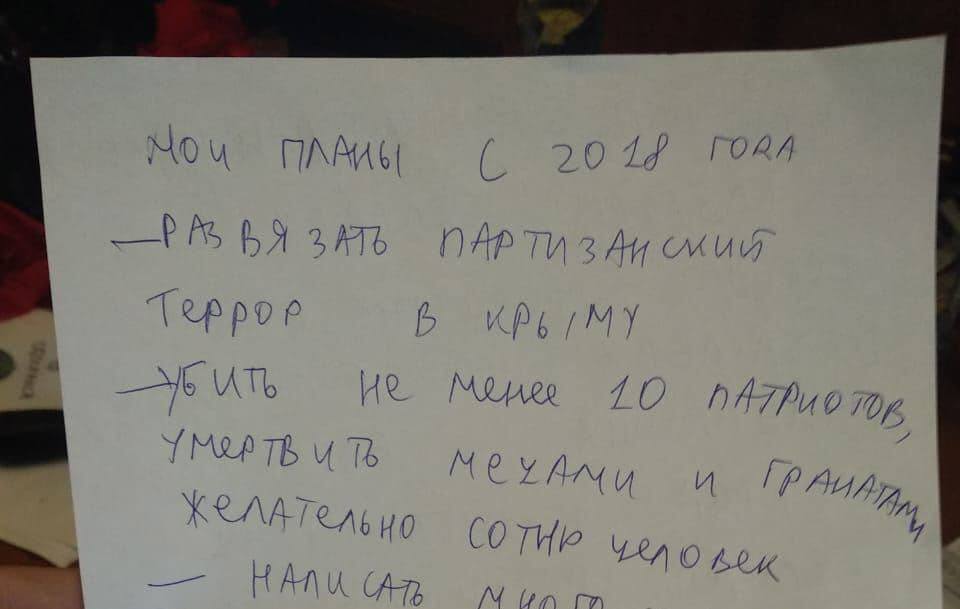 Мои планы с 2018 года
— Развязать партизанский
террор в Крыму
— Убить не менее 10 патриотов,
умертвить мечами и гранатами
желательно сотню человек
— Написать много